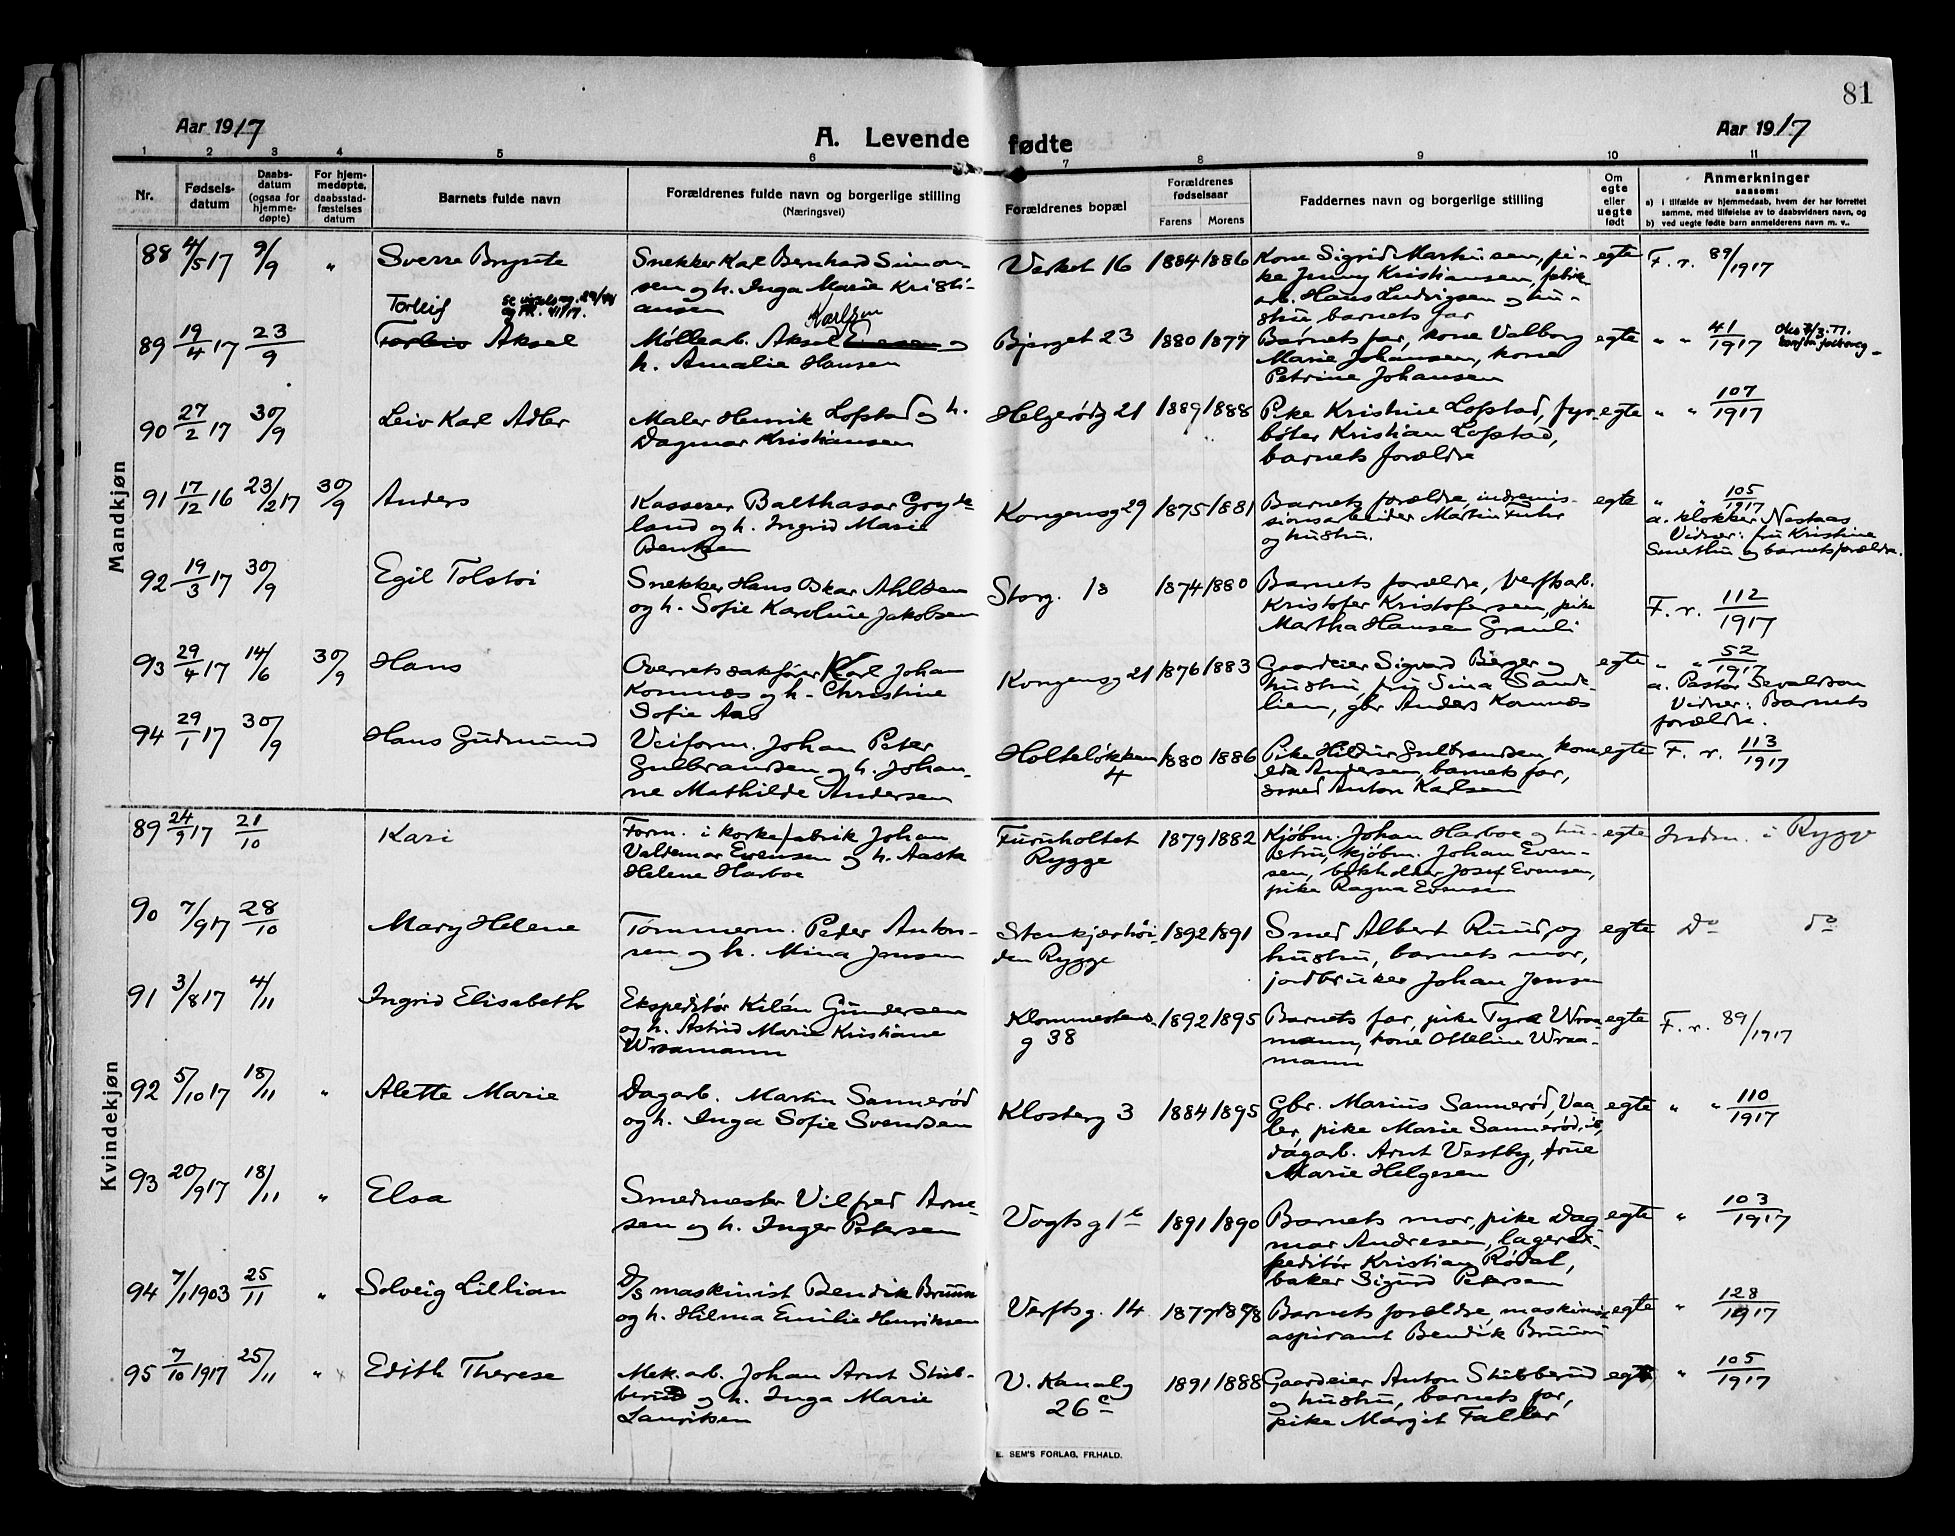 81
Aar 1917
A. Levende fødte
Aar 1917
1 2 3 4 5 6 7 8 9 10 11
Nr.
Fødsels-
datum
Daabs-
datum
(ogsaa for
hjemme-
døpte)
For hjem-
medøpte,
daabsstad-
fæstelses
datum
Barnets fulde navn
Forældrenes fulde navn og borgerlige stilling
(Næringsvei)
Forældrenes bopæl
Forældrenes
fødselsaar
Farens Morens
Faddernes navn og borgerlige stilling
Om
egte
eller
uegte
født
Anmerkninger
saasom:
a) i tilfælde av hjemmedaab, hvem der har forrettet
samme, med tilføielse av to daabsvidners navn, og
b) ved uegte fødte barn anmelderens navn m. v..
Mandkjøn
88 4/5 17 9/9 "
Sverre Brynte
Snekker Karl Bernhard Simon-
sen og h. Inga Marie Kristi-
ansen
Verket 16 1884 1886
Kone Sigrid Marthinsen, pi-
ke Jenny Kristiansen, fabrik-
arb. Hans Ludvigsen og hu-
stru barnets far
egte F. r. 89/1917
89 19/4 17 23/9
Torleif
Aksel
Karlsen
Møllearb. Aksel og
h. Amalie Hansen
Bjerget 23 1880 1877
Barnets far, kone Valborg
Marie Johansen, kone
Petrine Johansen
egte " " 41/1917
90 27/2 17 30/9
Leiv Karl Adler
Maler Henrik Lofstad og h.
Dagmar Kristiansen
Helgerødg 21 1889 1888
Pike Kristine Lofstad, fyr-
bøter Kristian Lofstad,
barnets forældre
egte " " 107/1917
91 17/12 16 23/2 17 30/9
Anders
Kasserer Balthasar Gryte-
land og h. Ingrid Marie
Bentsen
Kongensg 29 1875 1881
Barnets forældre, indremis-
sionsarbeider Martin Fuhr
og hustru.
egte " " 105/1917
a. klokker Nestaas
Vidner: fru Kristine
og barnets forældre.
92 19/3 17 30/9
Egil Tolstoi
Snekker Hans Oskar Ahlsen
og h. Sofie Karoline Jakobsen
Storg. 18 1874 1880
Barnets forældre, verftsarb.
Kristofer Kristofersen, pike
Martha Hansen Granli
F. r. 112/1917
93 29/4 17 14/6 30/9
Hans
Overretssakfører Karl Johan
Komnæs og h. Christine
Sofie Aas
Kongensg 21 1876 1883
Gaardeier Sigvard Berger og
hustru, fru Sina Sand-
lien, gbr Anders Komnæs
egte " " 52/1917
a. Pastor Sevaldson
Vidner: Barnets
forældre.
94 29/1 17 30/9
Hans Gudmund
Veiform. Johan Peter
Gulbrandsen og h. Johan-
ne Mathilde Andersen
Holteløkken 1880 1886
4
Pike Hildur Gulbrandsen, kone
Andersen, barnets far,
smed Anton Karlsen
egte F. r. 113/1917
Kvindekjøn
89 24/9 17 21/10
Kari
Form. i korkefabrik Johan
Valdemar Evensen og h. Aasta
Helene Harboe
Furuholtet 1879 1882
Rygge
Kjøbm. Johan Harboe og hu-
stru, kjøbm. Johan Even-
sen, bokholder Josef Evensen,
pike Ragna Evensen
egte Indm. i Rygge
90 7/9 17 28/10
Mary Helene
Tømmerm. Peder Anton-
sen og h. Mina Jensen
Stenkjærhøi- 1892 1891
den Rygge
Smed Albert Ruud og
hustru, barnets mor,
jordbruker Johan Jensen
egte Do do
91 3/8 17 4/11
Ingrid Elisabeth
Ekspeditør Kilén Gundersen
og h. Astrid Marie Kristiane
Wraamann
Klommestens- 1892 1895
g 38
Barnets far, pike Tyra Wraa-
mann, kone Otteline Wraa-
mann
egte F. r. 89/1917
92 5/10 17 18/11 "
Alette Marie
Dagarb. Martin Sannerød
og h. Inga Sofie Svendsen
Klosterg 3 1884 1895
Gbr. Marius Sannerød, Vaa-
ler, pike Marie Sannerød, ib,
dagarb. Arnt Vestby, frue
Marie Helgesen
egte " " 110/1917
93 20/9 17 18/11 "
Elsa
Smedmester Vilfred Arne-
sen og h. Inger Petersen
Vogtsg 1b 1891 1890
Barnets mor, pike Dag-
mar Andresen, lagerex-
peditør Kristian Rødal,
baker Sigurd Petersen
egte " 103/1917
94 7/1 1903 25/11 "
Solveig Lillian
D/S maskinist Bendik Bruun
og h. Hilma Emilie Henriksen
Verftsg. 14 1877 1878
Barnets forældre, maskinist-
aspirant Bendik Bruun
egte " 128/1917
95 7/10 1917 25/11 "
Edith Therese
Mek. arb. Johan Arnt Stub-
berud og h. Inga Marie
Lauritsen
V. Kanalg 1891 1888
26c
Gaardeier Anton Stubberud
og hustru, barnets far,
pike Margit Faller
egte " 105/1917
E. SEM'S FORLAG, FR.HALD.